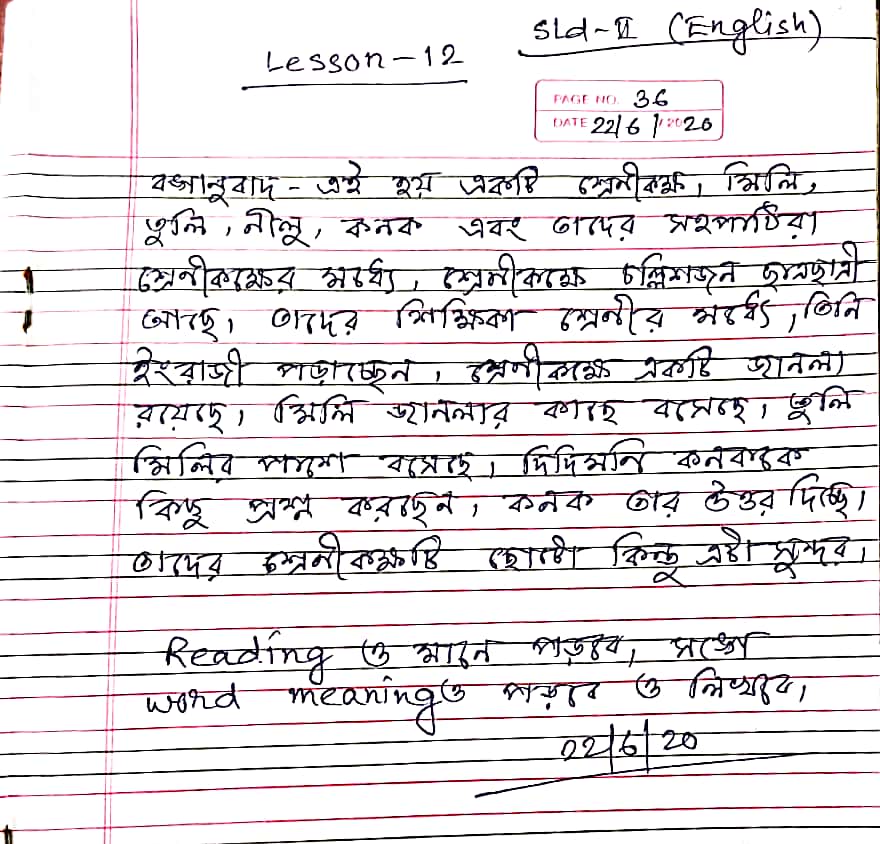 Std-II (English)
Lesson-12
PAGE NO. 36
DATE 22/6/2020
বঙ্গানুবাদ - এই হয় একটি শ্রেনীকক্ষ। মিলি,
তুলি, নীলু, কনক এবং তাদের সহপাঠিরা
শ্রেনীকক্ষের মধ্যে। শ্রেনীকক্ষে চল্লিশজন ছাত্রছাত্রী
আছে। তাদের শিক্ষিকা শ্রেনীর মধ্যে, তিনি
ইংরাজী পড়াচ্ছেন। শ্রেনীকক্ষে একটি জানলা
রয়েছে। মিলি জানলার কাছে বসেছে। তুলি
মিলির পাশে বসেছে। দিদিমনি কনককে
কিছু প্রশ্ন করছেন। কনক তার উত্তর দিচ্ছে।
তাদের শ্রেনীকক্ষটি ছোটো কিন্তু এটা সুন্দর।
Reading ও মানে পড়বে, সঙ্গে
word meaningও পড়বে ও লিখবে।
22/6/20